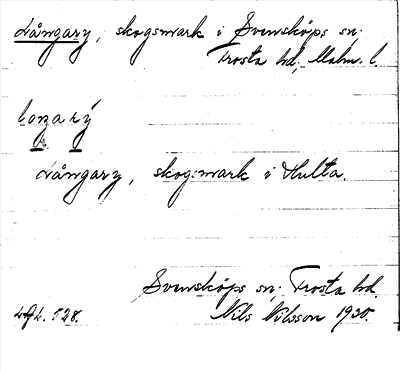 Långary, skogsmark i Svensköps sn;
Frosta hd, Malm. l.
loŋarý
Långary, skogsmark i Hulta.
Svensköps sn; Frosta hd.
Nils Nilsson 1930.
528.